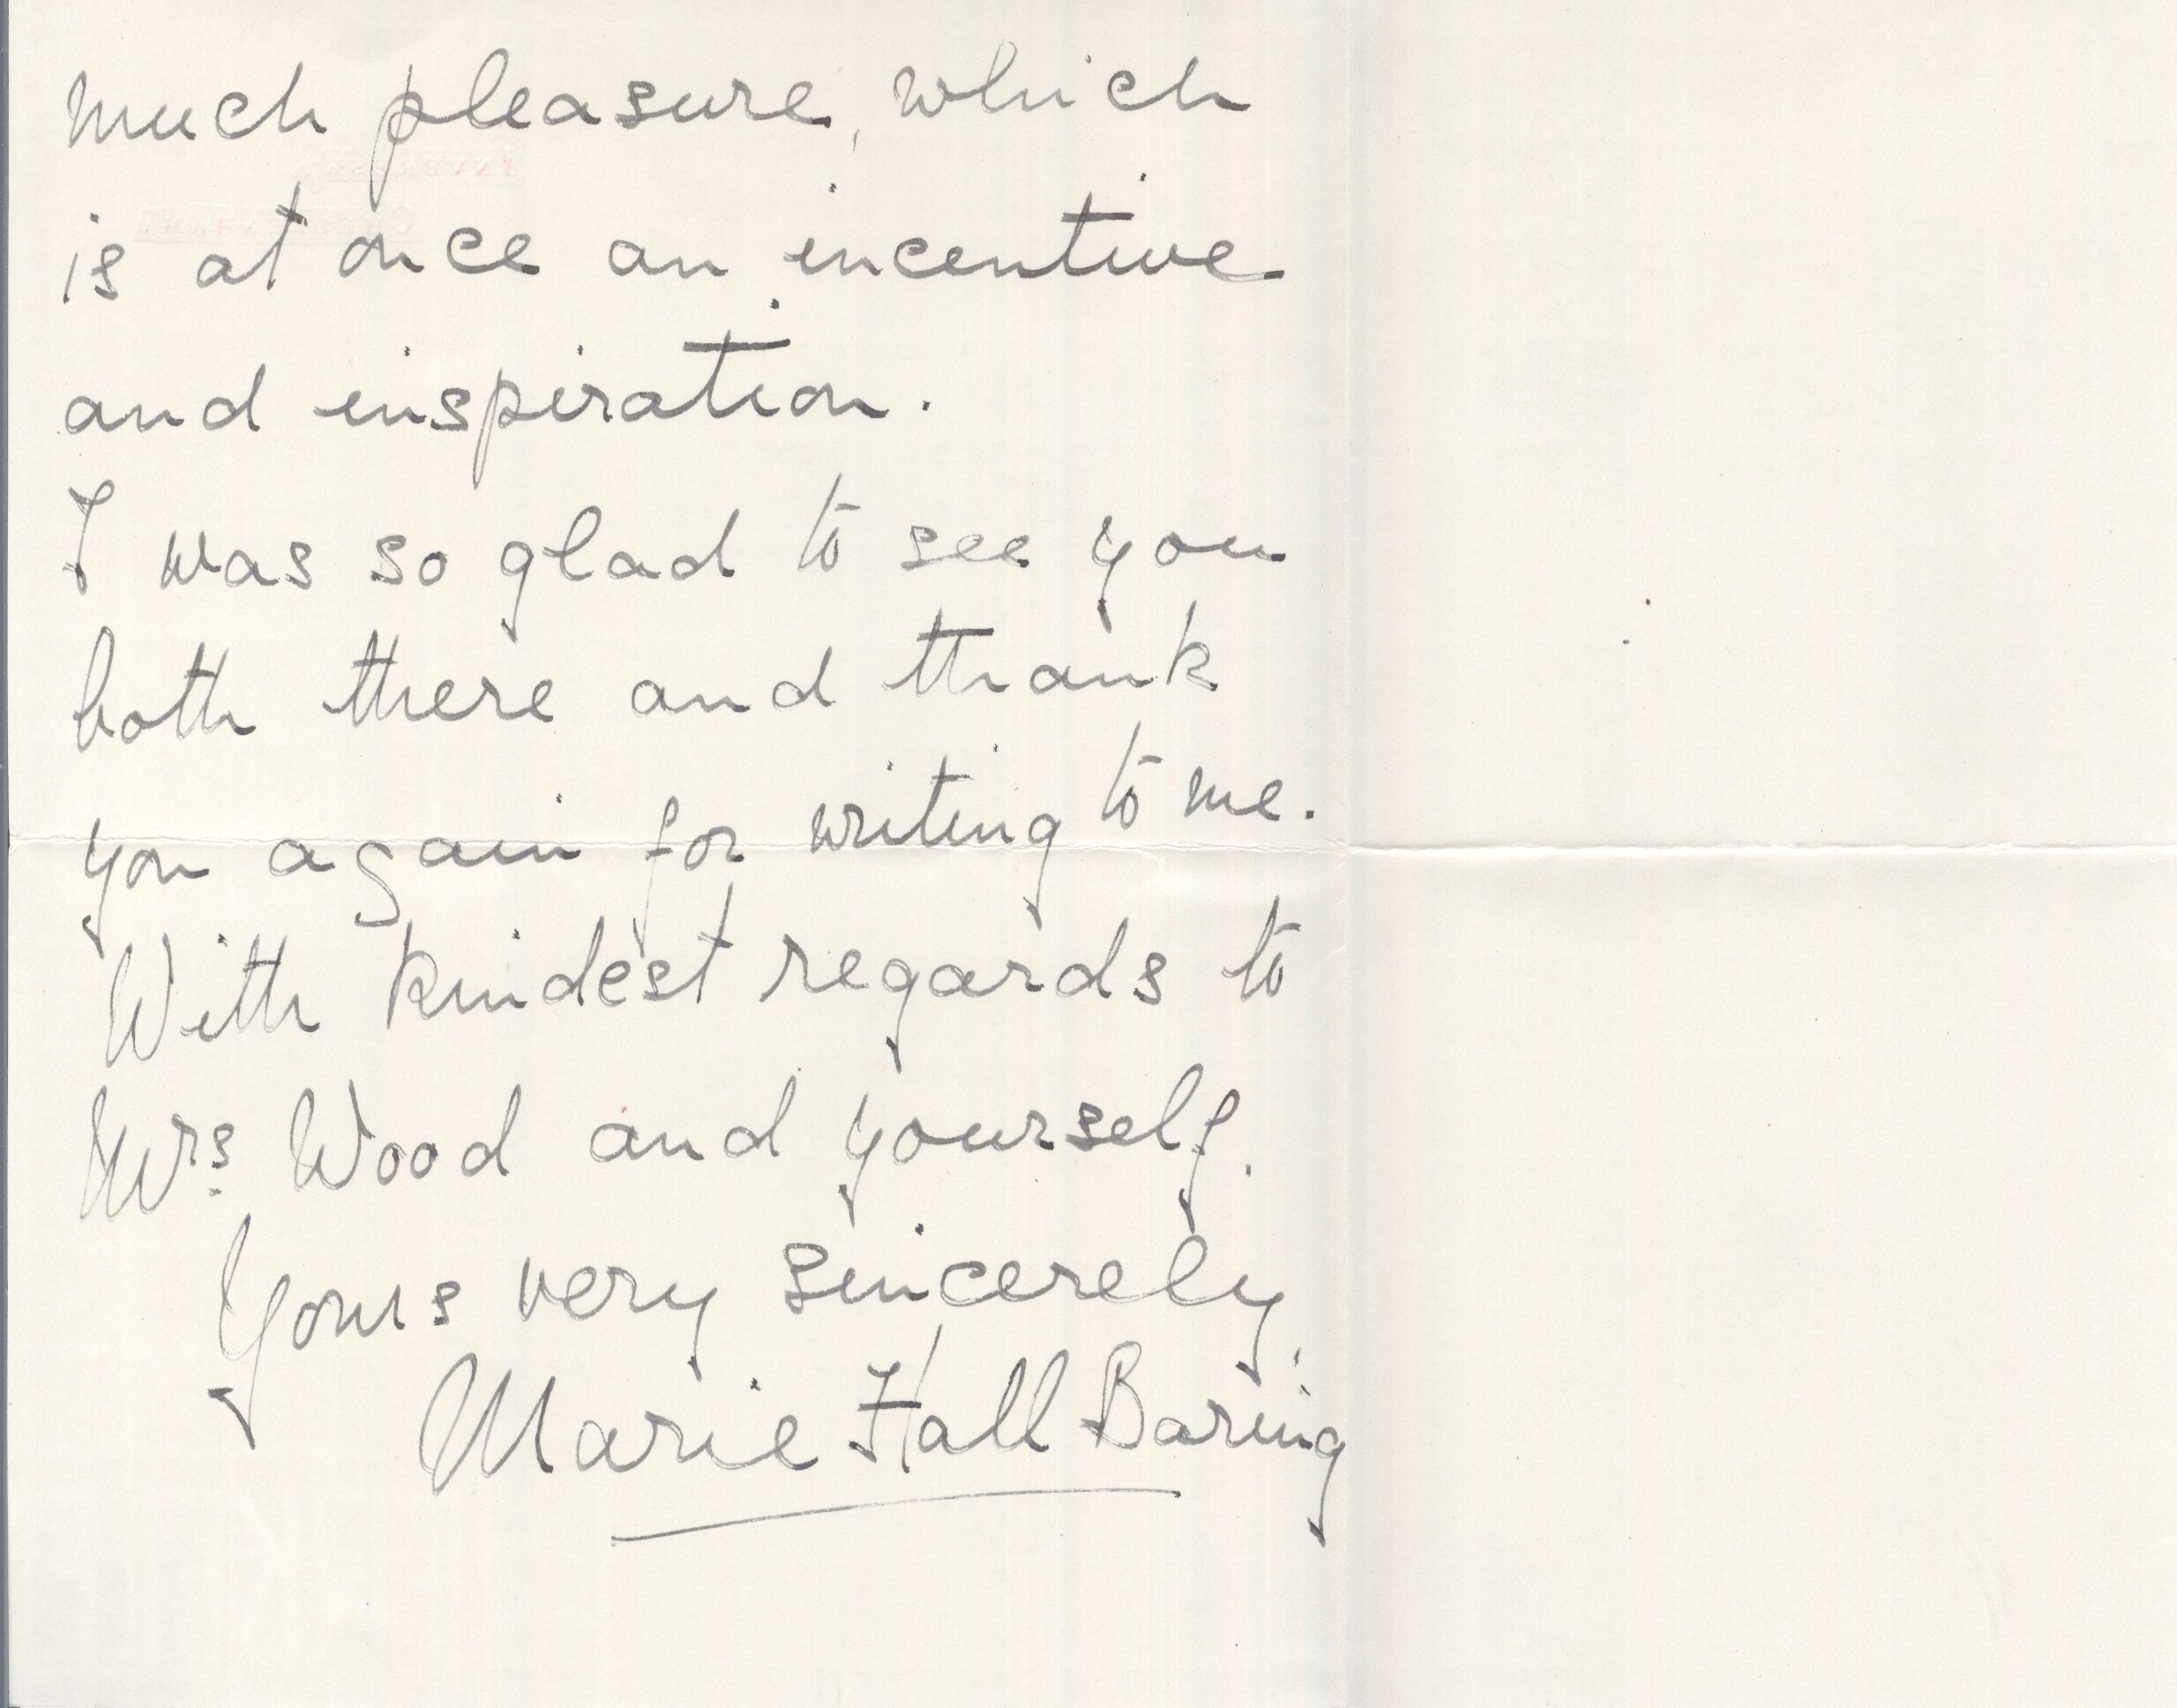 much pleasure, which
is at once an incentive
and inspiration.
I was so glad to see you
both there and thank
you again for writing to me.
With kindest regards to
Mrs. Wood and yourself.
Yours very sincerely,
Marie Hall Baring